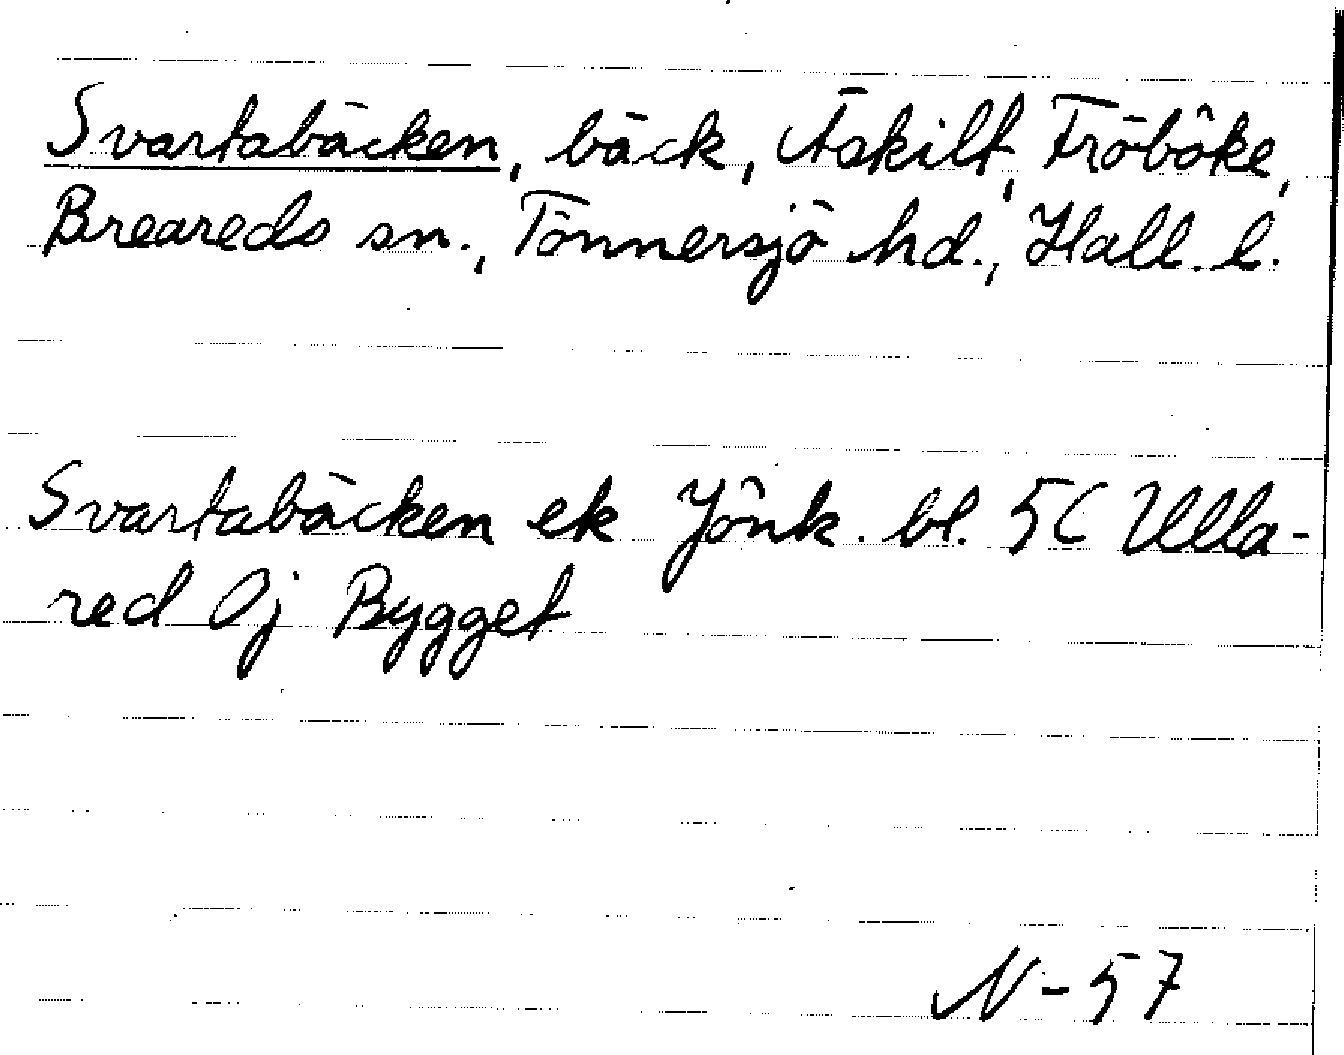 Svartabäcken, bäck, Äskilt, Fröböke,
Breareds sn., Tönnersjö hd., Hall. l.
Svartabäcken ek Jönk. bl. 5C Ulla-
red Oj Bygget
N-57